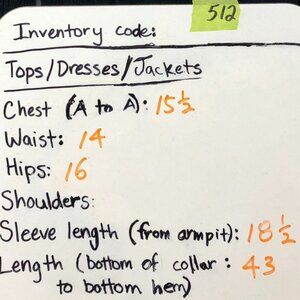 512
Inventory code:
Tops/Dresses/Jackets
Chest (A to A): 15 1/2
Waist: 14
Hips: 16
Shoulders:
Sleeve length (from armpit): 18 1/2
Length (bottom of collar : 43
to bottom hem)